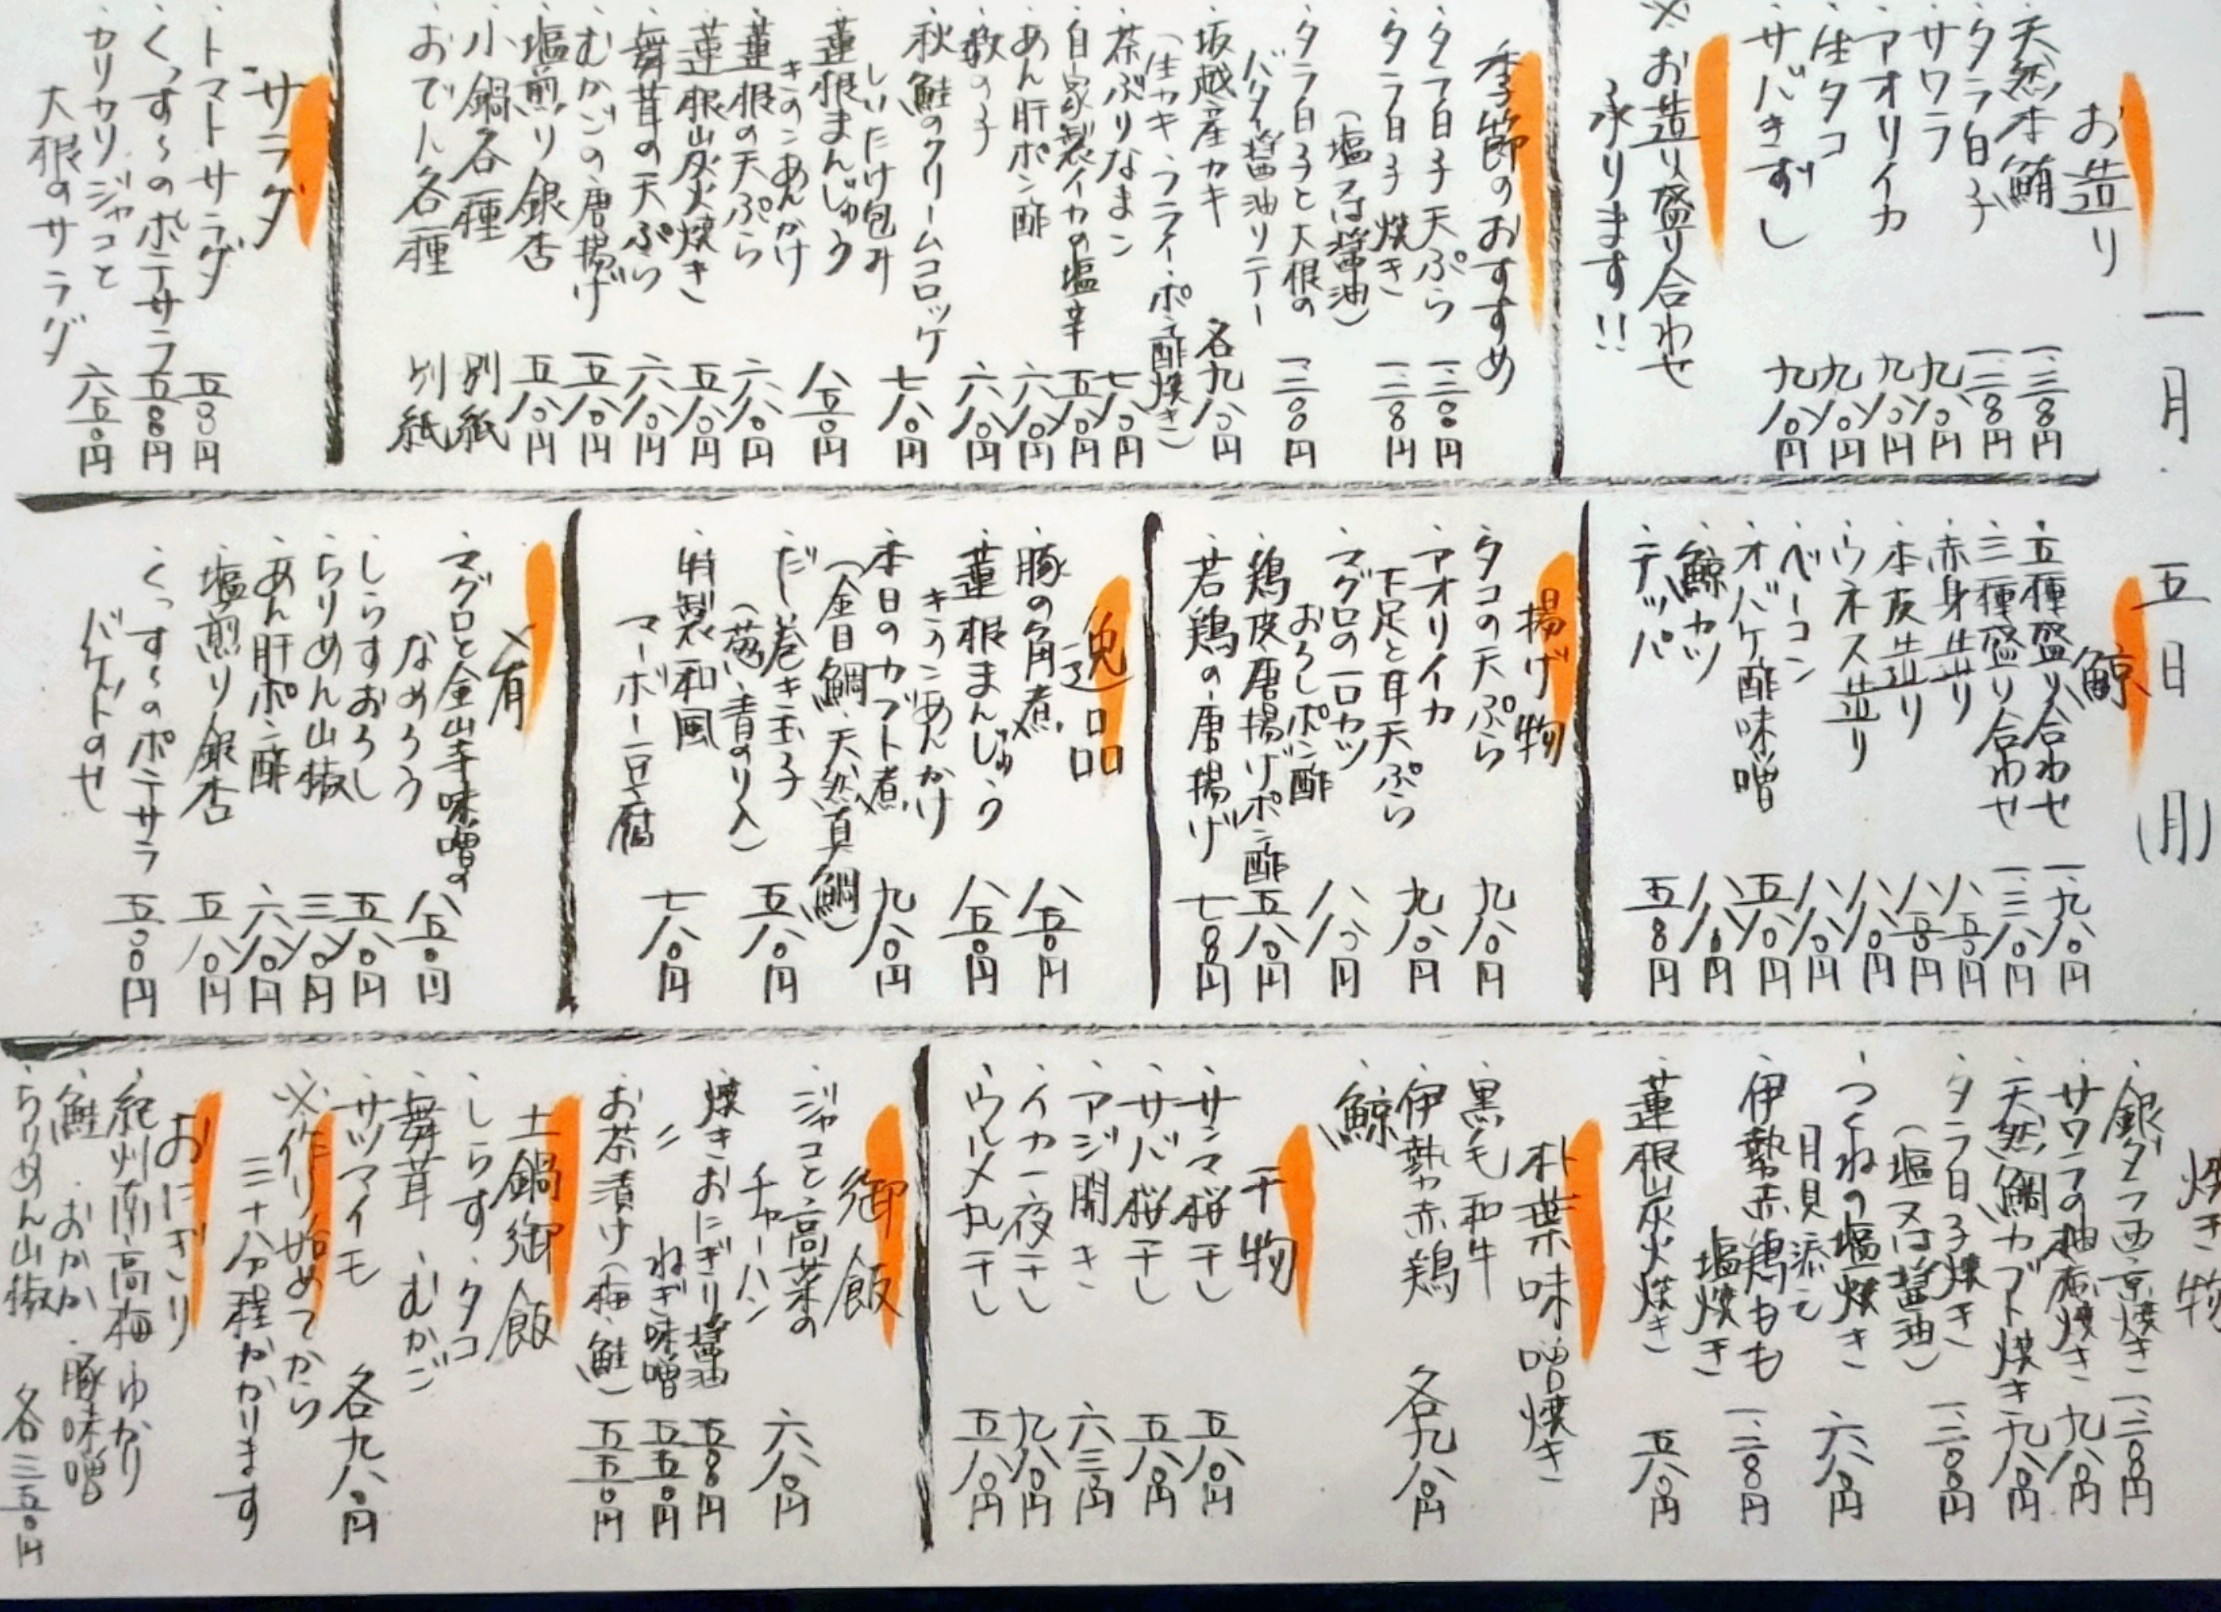 一月 五日 (月)
お造り
・天然本鮪 一、三〇〇円
・タラ白子 一、三〇〇円
・サワラ 九八〇円
・アオリイカ 九八〇円
・生タコ 九八〇円
・サバきずし 九八〇円
※お造り盛り合わせ
承ります!!
季節のおすすめ
・タラ白子天ぷら 一、三〇〇円
・タラ白子焼き 一、三〇〇円
(塩又は醤油)
・タラ白子と大根の
バター醤油ソテー 一、三〇〇円
・坂越産カキ 各九八〇円
(生カキ・フライ・ポン酢・焼き)
・茶ぶりなまこ 七八〇円
・自家製イカの塩辛 五八〇円
・あん肝ポン酢 六八〇円
・数の子 六八〇円
・秋鮭のクリームコロッケ
しいたけ包み 七八〇円
・蓮根まんじゅう
きのこあんかけ 八五〇円
・蓮根の天ぷら 六八〇円
・蓮根炭火焼き 五八〇円
・舞茸の天ぷら 六八〇円
・むかごの唐揚げ 五八〇円
・塩煎り銀杏 五八〇円
・小鍋各種 別紙
・おでん各種 別紙
サラダ
・トマトサラダ 五〇〇円
・くっす〜のポテサラ 五〇〇円
・カリカリジャコと
大根のサラダ 六五〇円
鯨
・五種盛り合わせ 一、九八〇円
・三種盛り合わせ 一、三八〇円
・赤身造り 八五〇円
・本皮造り 八五〇円
・ウネス造り 八八〇円
・ベーコン 八八〇円
・オバケ酢味噌 五八〇円
・鯨カツ 八八〇円
・テッパ 五八〇円
揚げ物
・タコの天ぷら 九八〇円
・アオリイカ
下足と耳天ぷら 九八〇円
・マグロの一口カツ
おろしポン酢 八八〇円
・鶏皮唐揚げポン酢 五八〇円
・若鶏の唐揚げ 七〇〇円
逸品
・豚の角煮 八五〇円
・蓮根まんじゅう
きのこあんかけ 八五〇円
・本日のカブト煮
(金目鯛・天然真鯛) 九八〇円
・だし巻き玉子
(葱・青のり入) 五八〇円
・特製和風
マーボー豆腐 七八〇円
肴
・マグロと金山寺味噌の
なめろう 八五〇円
・しらすおろし 五八〇円
・ちりめん山椒 三八〇円
・あん肝ポン酢 六八〇円
・塩煎り銀杏 五八〇円
・くっす〜のポテサラ
バゲットのせ 五〇〇円
焼き物
・銀ダラ西京焼き 一、三〇〇円
・サワラの柚庵焼き 九八〇円
・天然鯛カブト焼き 九八〇円
・タラ白子焼き
(塩又は醤油) 一、三〇〇円
・つくねの塩焼き
月見添え 六八〇円
・伊勢赤鶏もも
塩焼き 一、三〇〇円
・蓮根炭火焼き 五八〇円
朴葉味噌焼き
・黒毛和牛
・伊勢赤鶏 各九八〇円
・鯨
干物
・サンマ桜干し 五八〇円
・サバ桜干し 五八〇円
・アジ開き 六三〇円
・イカ一夜干し 九八〇円
・ウルメ丸干し 五八〇円
御飯
・ジャコと高菜の
チャーハン 六八〇円
・焼きおにぎり醤油 五〇〇円
・〃 ねぎ味噌 五五〇円
・お茶漬け(梅・鮭) 五五〇円
土鍋御飯
・しらす・タコ
・舞茸・むかご
・サツマイモ 各九八〇円
※作り始めてから
三十分程かかります
おにぎり
・紀州南高梅・ゆかり
・鮭・おかか・豚味噌
・ちりめん山椒 各三五〇円